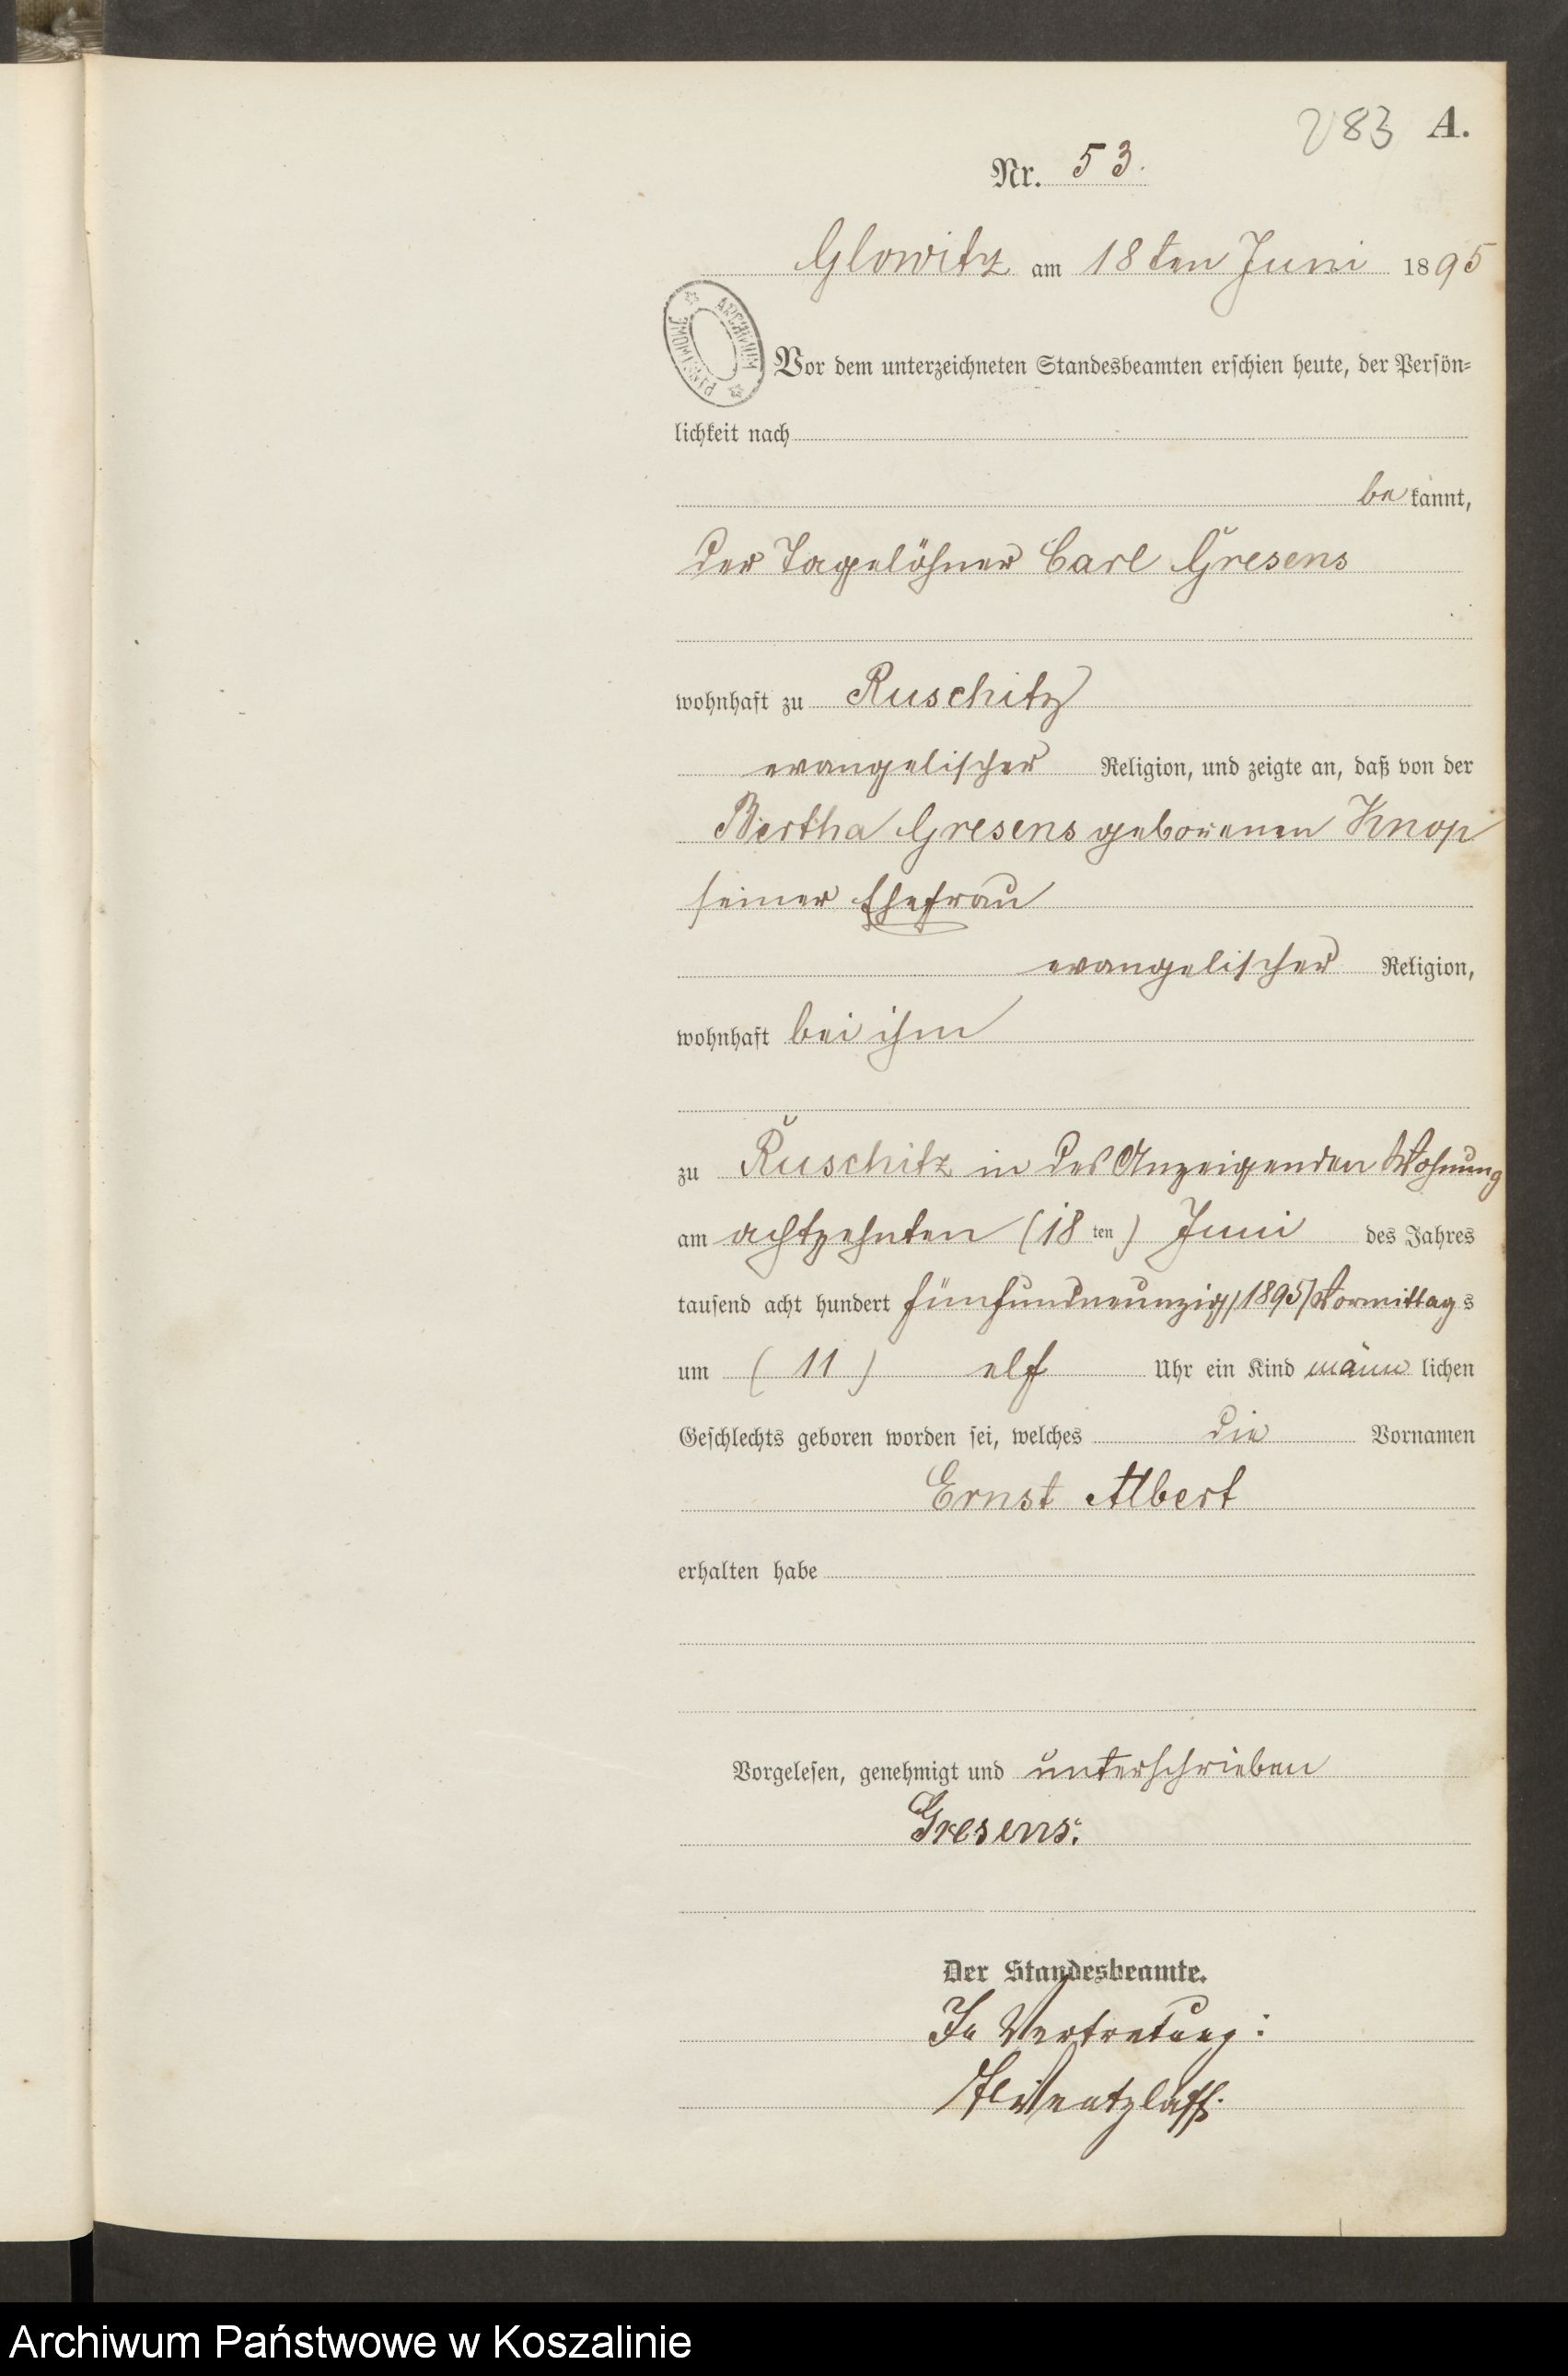 283 A.
Nr. 53.
Glowitz am 18ten Juni 1895
ARCHIWUM PAŃSTWOWE
Vor dem unterzeichneten Standesbeamten erschien heute, der Persön-
lichkeit nach
bekannt,
der Tagelöhner Carl Gresens
wohnhaft zu Ruschitz
evangelischer Religion, und zeigte an, daß von der
Bertha Gresens geborenen Knop
seiner Ehefrau
evangelischer Religion,
wohnhaft bei ihm
zu Ruschitz in des Anzeigenden Wohnung
am achtzehnten (18 ten) Juni des Jahres
tausend acht hundert fünfundneunzig /1895/ Vormittags
um (11) elf Uhr ein Kind männlichen
Geschlechts geboren worden sei, welches die Vornamen
Ernst Albert
erhalten habe
Vorgelesen, genehmigt und unterschrieben
Gresens.
Der Standesbeamte.
In Vertretung:
Archiwum Państwowe w Koszalinie